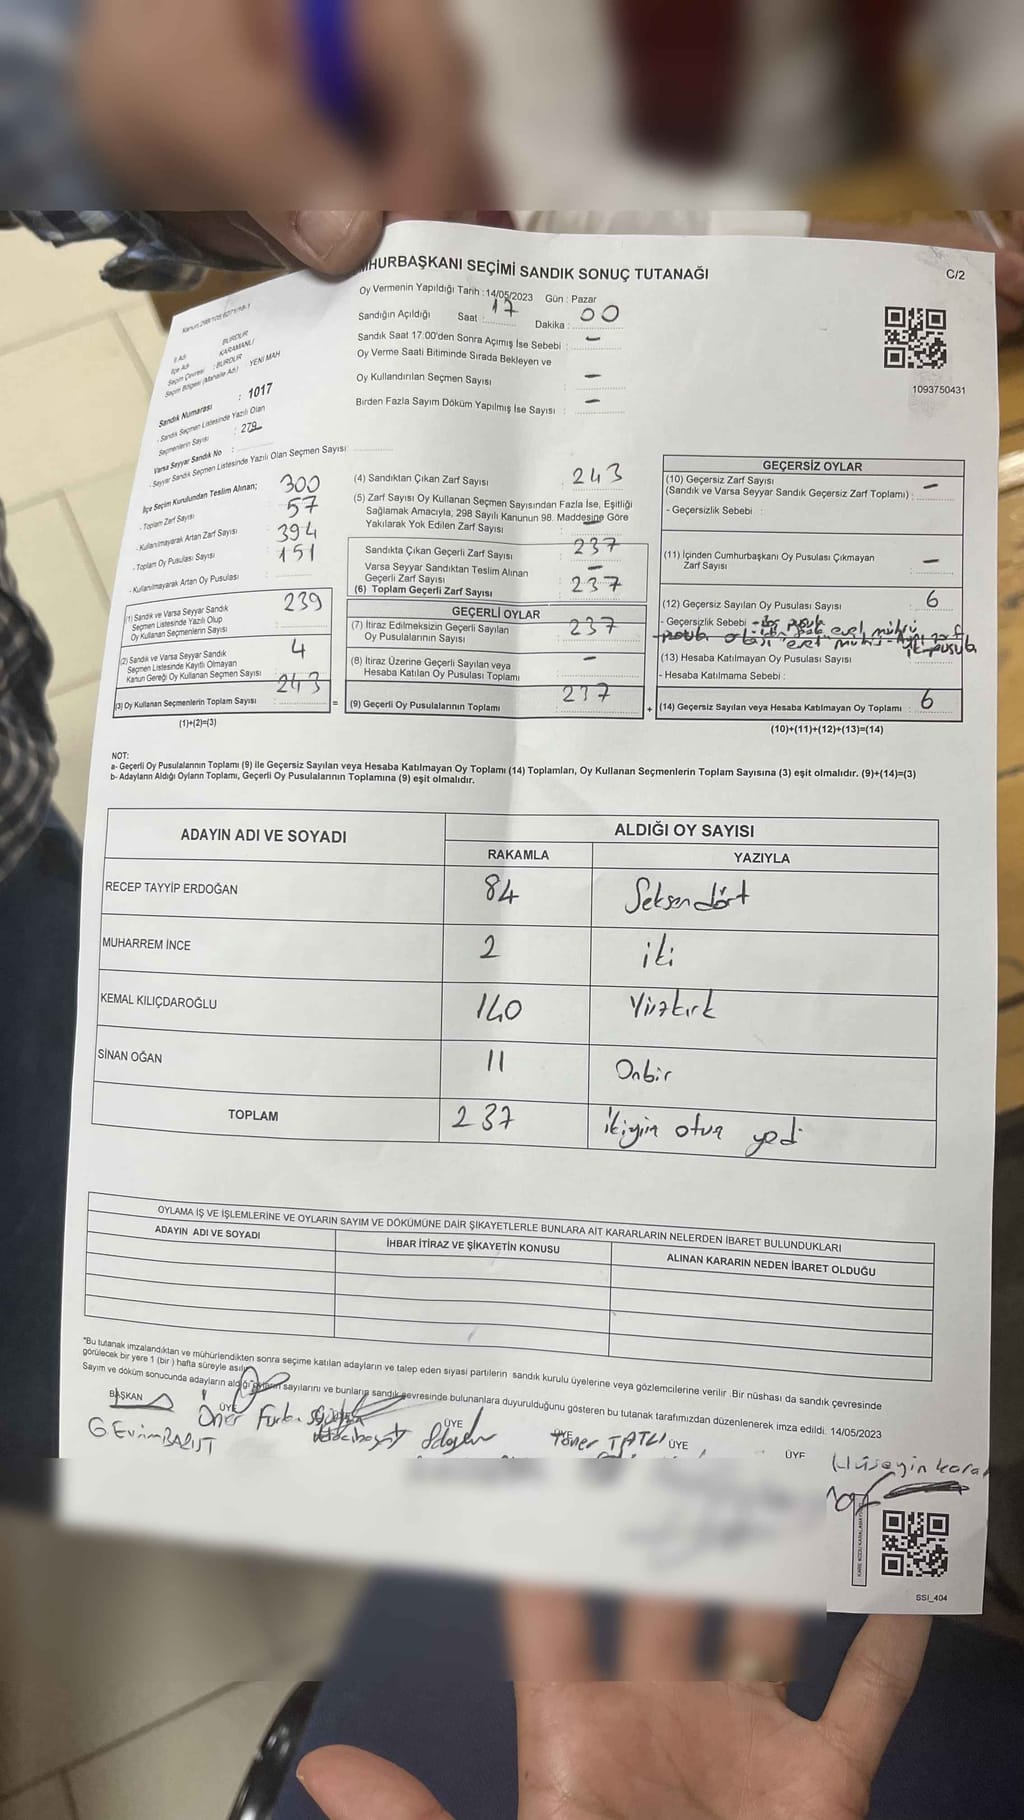 HURBAŞKANI SEÇİMİ SANDIK SONUÇ TUTANAĞI
C/2
Oy Vermenin Yapıldığı Tarih : 14/05/2023 Gün : Pazar
Sandığın Açıldığı Saat : 17 Dakika : 00
Sandık Saat 17:00'den Sonra Açımış İse Sebebi : -
Oy Verme Saati Bitiminde Sırada Bekleyen ve
Oy Kullandırılan Seçmen Sayısı : -
Birden Fazla Sayım Döküm Yapılmış İse Sayısı : -
1093750431
İl Adı BURDUR
İlçe Adı KARAMANLI
Seçim Çevresi : BURDUR
Seçim Bölgesi (Mahalle Adı) : YENİ MAH
Sandık Numarası : 1017
- Sandık Seçmen Listesinde Yazılı Olan
Seçmenlerin Sayısı : 279
Varsa Seyyar Sandık No :
- Seyyar Sandık Seçmen Listesinde Yazılı Olan Seçmen Sayısı:
İlçe Seçim Kurulundan Teslim Alınan;
- Toplam Zarf Sayısı : 300
- Kullanılmayarak Artan Zarf Sayısı : 57
- Toplam Oy Pusulası Sayısı : 394
- Kullanılmayarak Artan Oy Pusulası : 151
(1) Sandık ve Varsa Seyyar Sandık
Seçmen Listesinde Yazılı Olup
Oy Kullanan Seçmenlerin Sayısı : 239
(2) Sandık ve Varsa Seyyar Sandık
Seçmen Listesinde Kayıtlı Olmayan
Kanun Gereği Oy Kullanan Seçmen Sayısı : 4
(3) Oy Kullanan Seçmenlerin Toplam Sayısı : 243
(1)+(2)=(3)
(4) Sandıktan Çıkan Zarf Sayısı : 243
(5) Zarf Sayısı Oy Kullanan Seçmen Sayısından Fazla İse, Eşitliği
Sağlamak Amacıyla, 298 Sayılı Kanunun 98. Maddesine Göre
Yakılarak Yok Edilen Zarf Sayısı : -
Sandıkta Çıkan Geçerli Zarf Sayısı : 237
Varsa Seyyar Sandıktan Teslim Alınan
Geçerli Zarf Sayısı : -
(6) Toplam Geçerli Zarf Sayısı : 237
GEÇERLİ OYLAR
(7) İtiraz Edilmeksizin Geçerli Sayılan
Oy Pusulalarının Sayısı : 237
(8) İtiraz Üzerine Geçerli Sayılan veya
Hesaba Katılan Oy Pusulası Toplamı : -
= (9) Geçerli Oy Pusulalarının Toplamı : 237
GEÇERSİZ OYLAR
(10) Geçersiz Zarf Sayısı
(Sandık ve Varsa Seyyar Sandık Geçersiz Zarf Toplamı) : -
- Geçersizlik Sebebi :
(11) İçinden Cumhurbaşkanı Oy Pusulası Çıkmayan
Zarf Sayısı : -
(12) Geçersiz Sayılan Oy Pusulası Sayısı : 6
- Geçersizlik Sebebi - Boş pusula
evet mühürü
iki pusula
(13) Hesaba Katılmayan Oy Pusulası Sayısı :
- Hesaba Katılmama Sebebi :
+ (14) Geçersiz Sayılan veya Hesaba Katılmayan Oy Toplamı : 6
(10)+(11)+(12)+(13)=(14)
NOT:
a- Geçerli Oy Pusulalarının Toplamı (9) ile Geçersiz Sayılan veya Hesaba Katılmayan Oy Toplamı (14) Toplamları, Oy Kullanan Seçmenlerin Toplam Sayısına (3) eşit olmalıdır. (9)+(14)=(3)
b- Adayların Aldığı Oyların Toplamı, Geçerli Oy Pusulalarının Toplamına (9) eşit olmalıdır.
ADAYIN ADI VE SOYADI
ALDIĞI OY SAYISI
RAKAMLA YAZIYLA
RECEP TAYYİP ERDOĞAN 84 Seksendört
MUHARREM İNCE 2 iki
KEMAL KILIÇDAROĞLU 140 Yüzkırk
SİNAN OĞAN 11 Onbir
TOPLAM 237 ikiyüz otuz yedi
OYLAMA İŞ VE İŞLEMLERİNE VE OYLARIN SAYIM VE DÖKÜMÜNE DAİR ŞİKAYETLERLE BUNLARA AİT KARARLARIN NELERDEN İBARET BULUNDUKLARI
ADAYIN ADI VE SOYADI İHBAR İTİRAZ VE ŞİKAYETİN KONUSU ALINAN KARARIN NEDEN İBARET OLDUĞU
*Bu tutanak imzalandıktan ve mühürlendikten sonra seçime katılan adayların ve talep eden siyasi partilerin sandık kurulu üyelerine veya gözlemcilerine verilir .Bir nüshası da sandık çevresinde
görülecek bir yere 1 (bir ) hafta süreyle asılır
Sayım ve döküm sonucunda adayların aldığı oyların sayılarını ve bunların sandık çevresinde bulunanlara duyurulduğunu gösteren bu tutanak tarafımızdan düzenlenerek imza edildi. 14/05/2023
BAŞKAN ÜYE ÜYE ÜYE ÜYE ÜYE
G Evrim BALIT Öner Taner TATLI Hüseyin kara
SSI_404